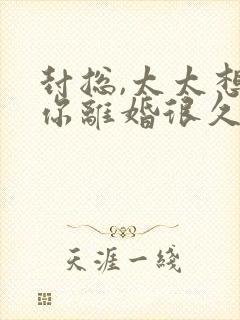 封总,太太想
你離婚很久
天涯一綫